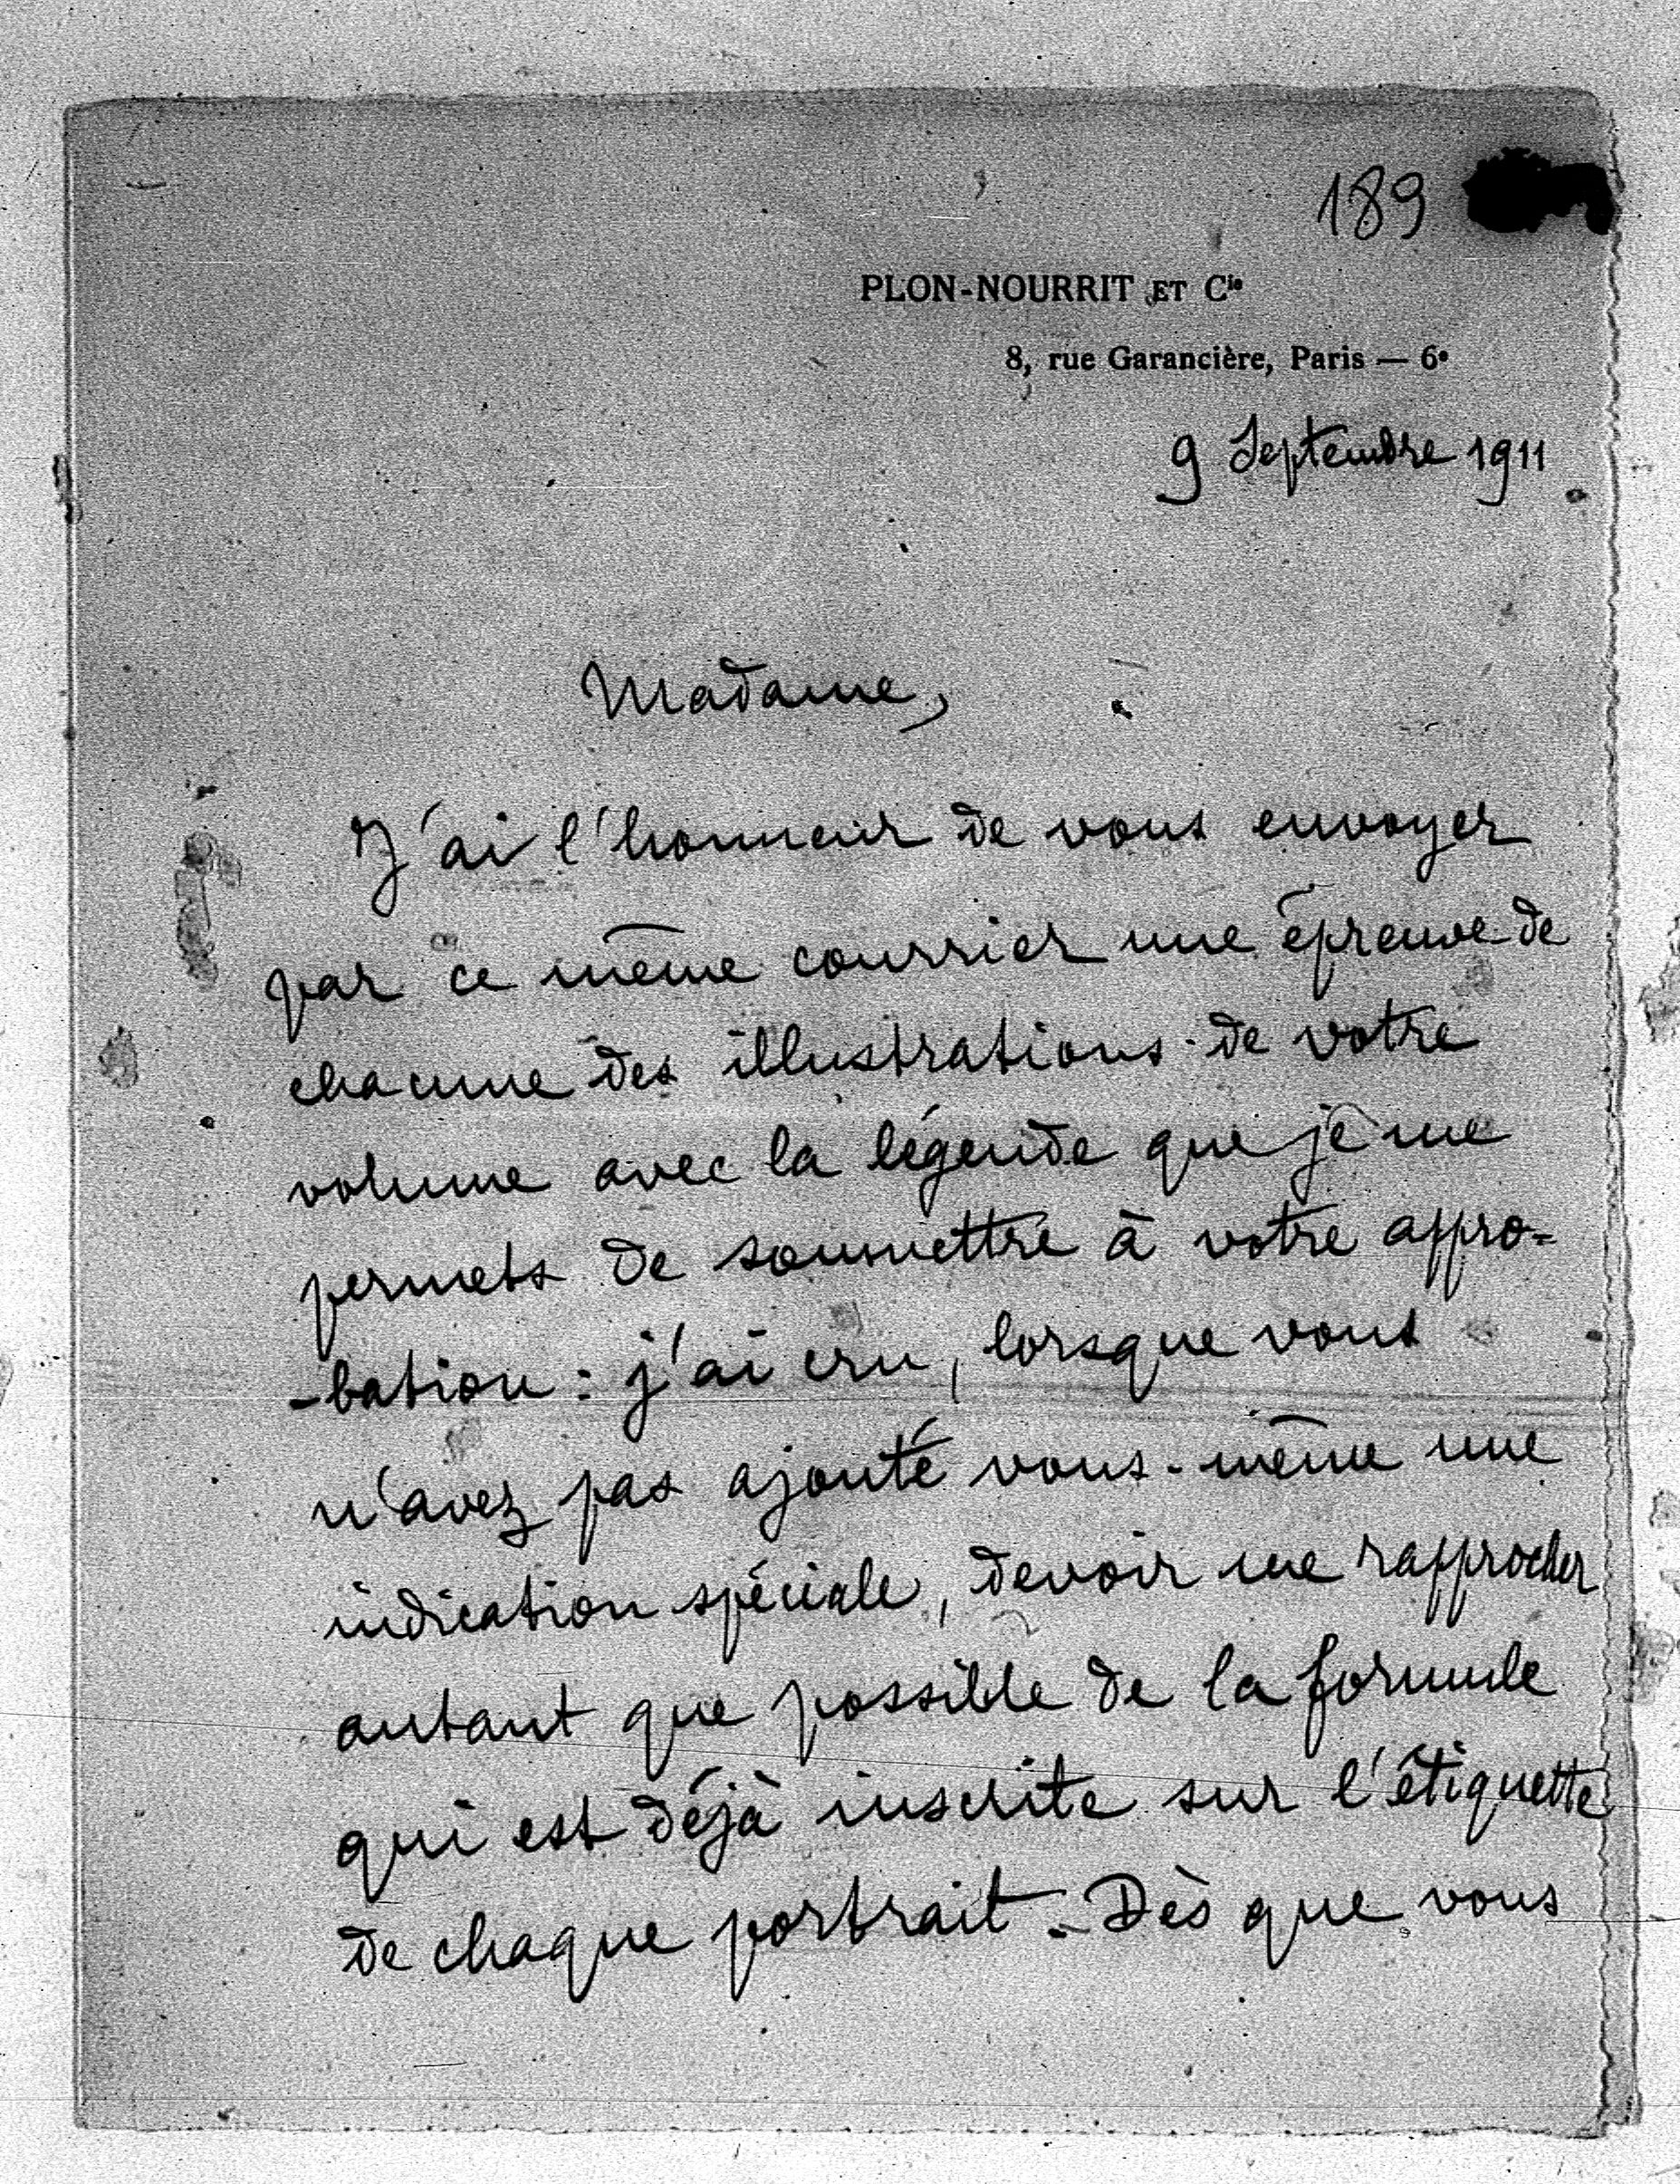 189
PLON-NOURRIT ET Cie
8, rue Garancière, Paris — 6e
9 Septembre 1911
Madame,
J'ai l'honneur de vous envoyer
par ce même courrier une épreuve de
chacune des illustrations de votre
volume avec la légende que je me
permets de soumettre à votre appro=
-bation : j'ai cru, lorsque vous
n'avez pas ajouté vous-même une
indication spéciale, devoir me rapprocher
autant que possible de la formule
qui est déjà inscrite sur l'étiquette
de chaque portrait. Dès que vous